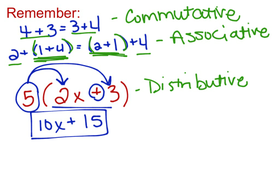 Remember:
4 + 3 = 3 + 4 - Commutative
2 + (1 + 4) = (2 + 1) + 4 - Associative
5 (2x + 3) - Distributive
10x + 15